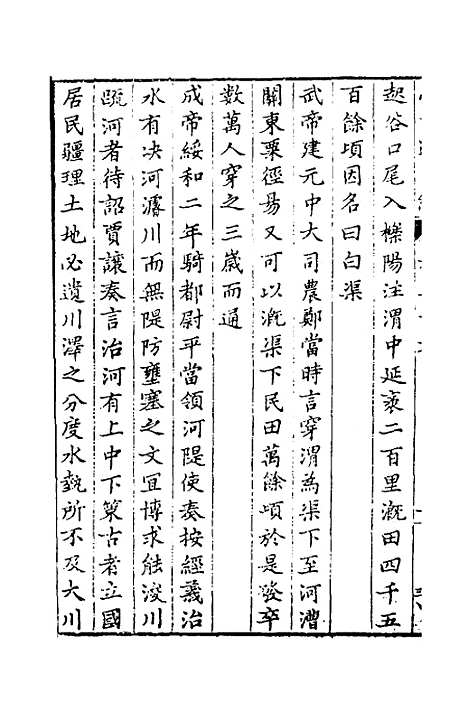 起谷口尾入櫟陽注渭中延袤二百里溉田四千五
百餘頃因名曰白渠
武帝建元中大司農鄭當時言穿渭為渠下至河漕
關東粟徑易又可以溉渠下民田萬餘頃於是發卒
數萬人穿之三歲而通
成帝綏和二年騎都尉平當領河隄使奏按經義治
水有决河濬川而無隄防壅塞之文宜博求能浚川
疏河者待詔賈讓奏言治河有上中下策古者立國
居民疆理土地必遺川澤之分度水埶所不及大川